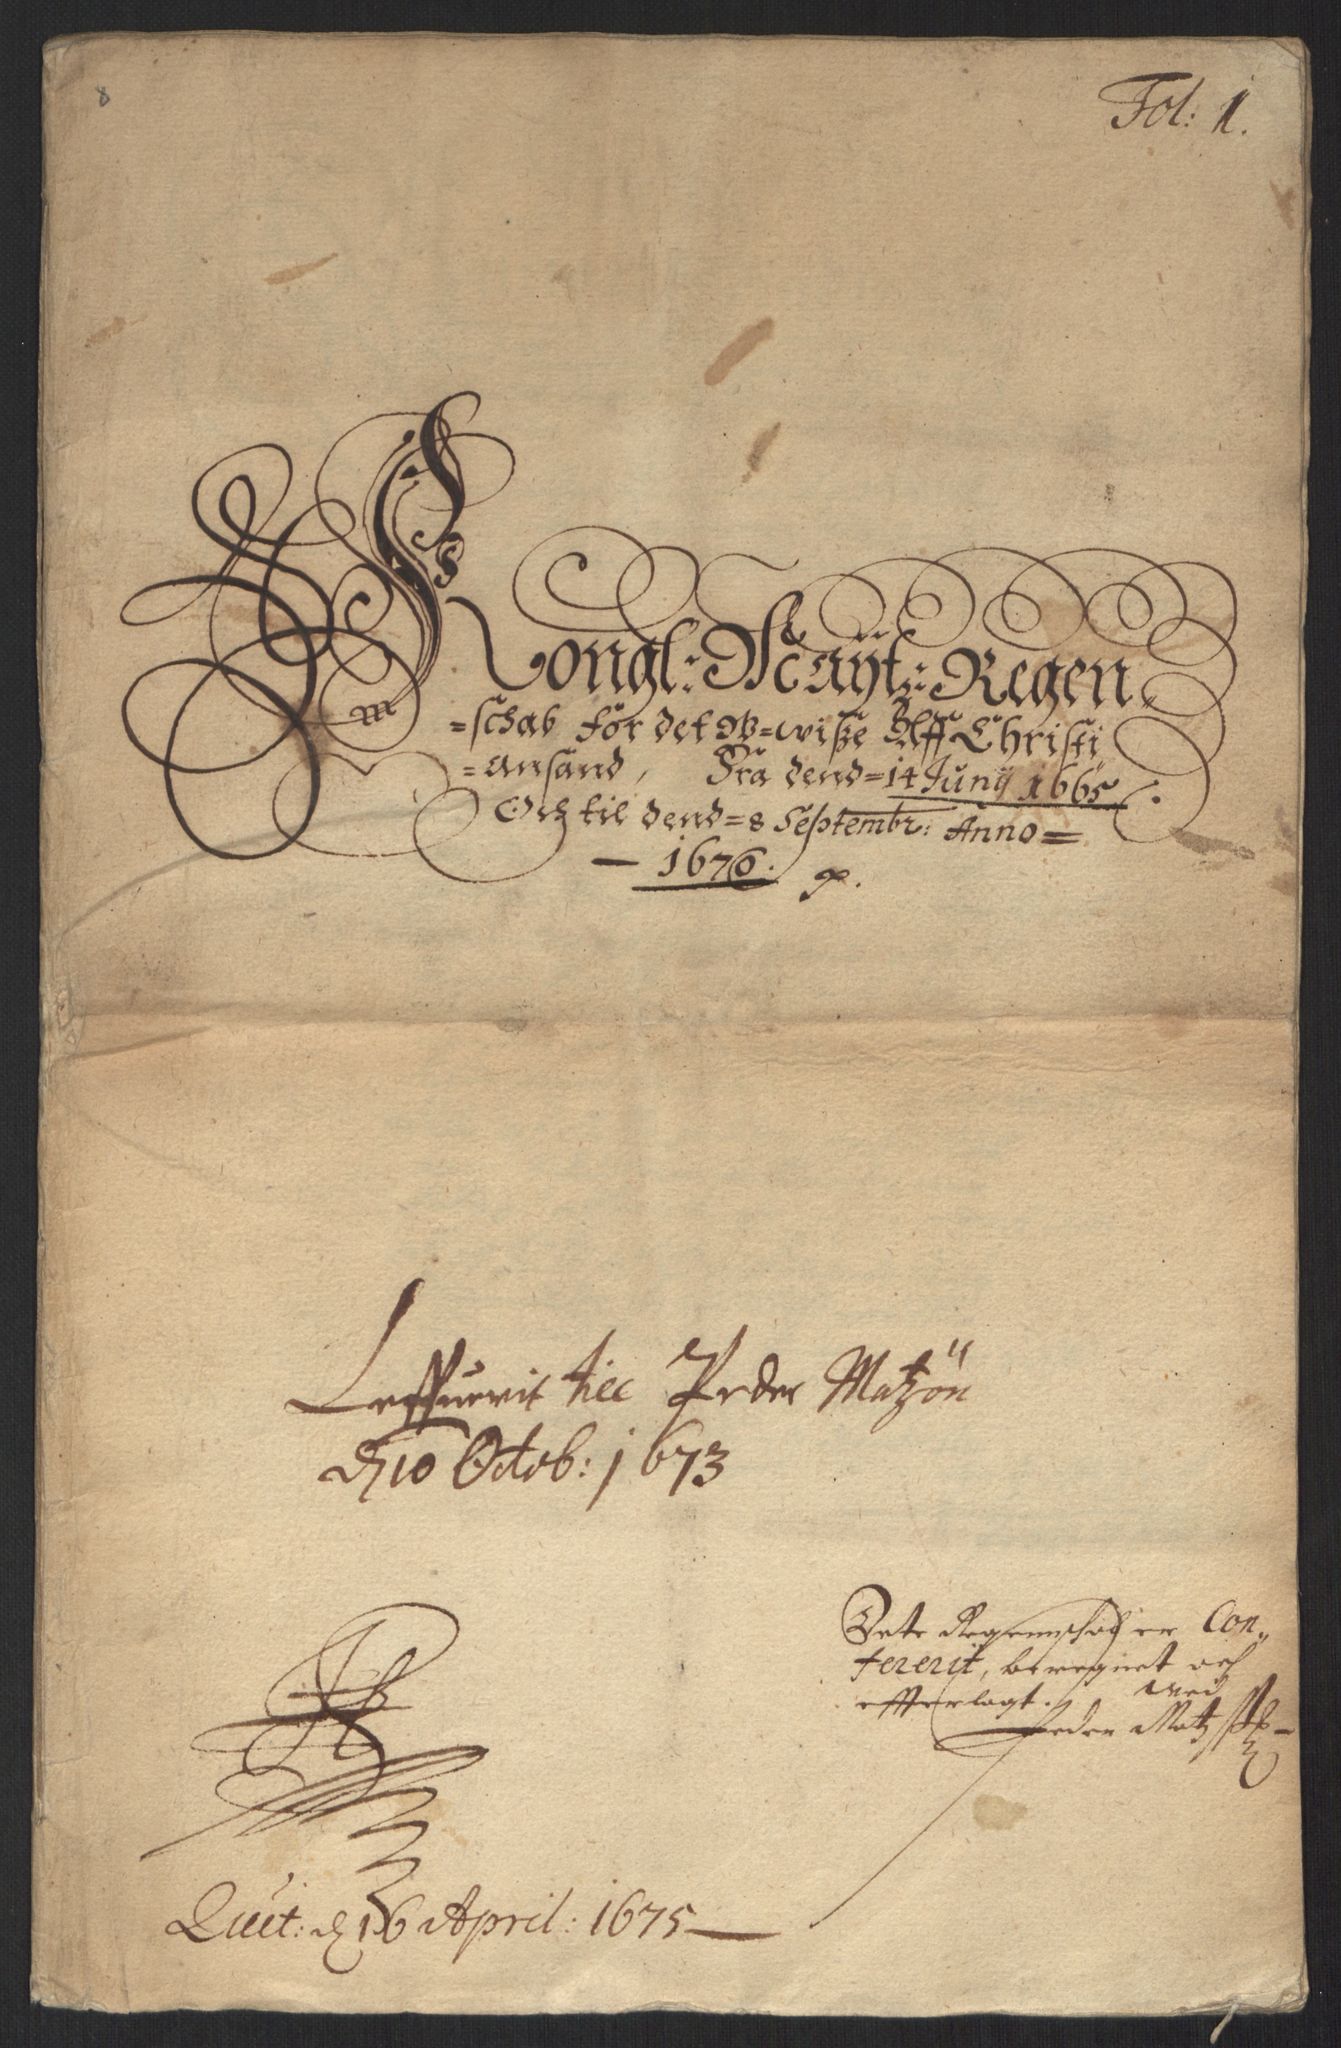 8
Fol: 1.
Kongl: Mayt:s Regen
=schab for det Uwisse Aff Christi
=ansand, Fra dend=14 Juny 1665
Och til dend=8 Septembr: Anno=
1670.
Leffuerit till Peder Matzön
d 10 Octob: 1673
Dete Regennschab er Con,,
fererit, beregnet och
effterlagt. wed
Peder Matz
Quit: d 16 April: 1675